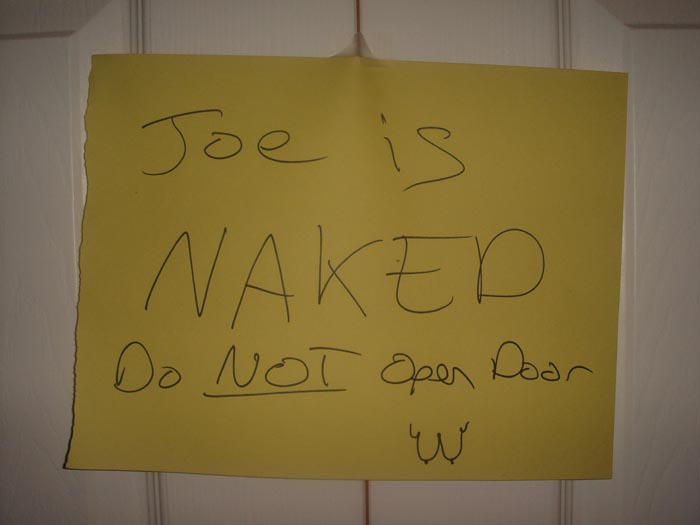 Joe is
NAKED
Do NOT open Door